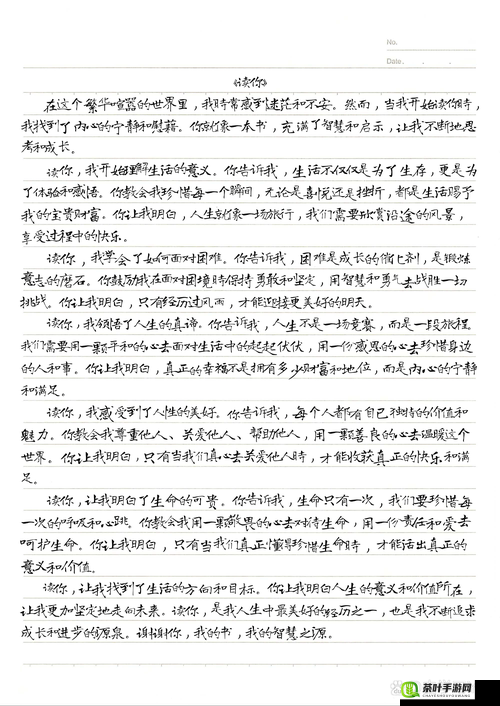 No.
Date.
《读你》
在这个繁华喧嚣的世界里，我时常感到迷茫和不安。然而，当我开始读你时，
我找到了内心的宁静和慰藉。你就像一本书，充满了智慧和启示，让我不断地思
考和成长。
读你，我开始理解生活的意义。你告诉我，生活不仅仅是为了生存，更是为
了体验和感悟。你教会我珍惜每一个瞬间，无论是喜悦还是挫折，都是生活赐予
我的宝贵财富。你让我明白，人生就像一场旅行，我们需要欣赏沿途的风景，
享受过程中的快乐。
读你，我学会了如何面对困难。你告诉我，困难是成长的催化剂，是锻炼
意志的磨石。你鼓励我在面对困境时保持勇敢和坚定，用智慧和勇气去战胜一切
挑战。你让我明白，只有经历过风雨，才能迎接更美好的明天。
读你，我领悟了人生的真谛。你告诉我，人生不是一场竞赛，而是一段旅程。
我们需要用一颗平和的心去面对生活中的起起伏伏，用一份感恩的心去珍惜身边
的人和事。你让我明白，真正的幸福不是拥有多少财富和地位，而是内心的宁静
和满足。
读你，我感受到了人性的美好。你告诉我，每个人都有自己独特的价值和
魅力。你教会我尊重他人、关爱他人、帮助他人，用一颗善良的心去温暖这个
世界。你让我明白，只有当我们真心去关爱他人时，才能收获真正的快乐和满
足。
读你，让我明白了生命的可贵。你告诉我，生命只有一次，我们要珍惜每
一次的呼吸和心跳。你教会我用一颗敬畏的心去对待生命，用一份责任和爱去
呵护生命。你让我明白，只有当我们真正懂得珍惜生命时，才能活出真正的
意义和价值。
读你，让我找到了生活的方向和目标。你让我明白人生的意义和价值所在，
让我更加坚定地走向未来。读你，是我人生中最美好的经历之一，也是我不断追求
成长和进步的源泉。谢谢你，我的书，我的智慧之源。
茶叶手游网